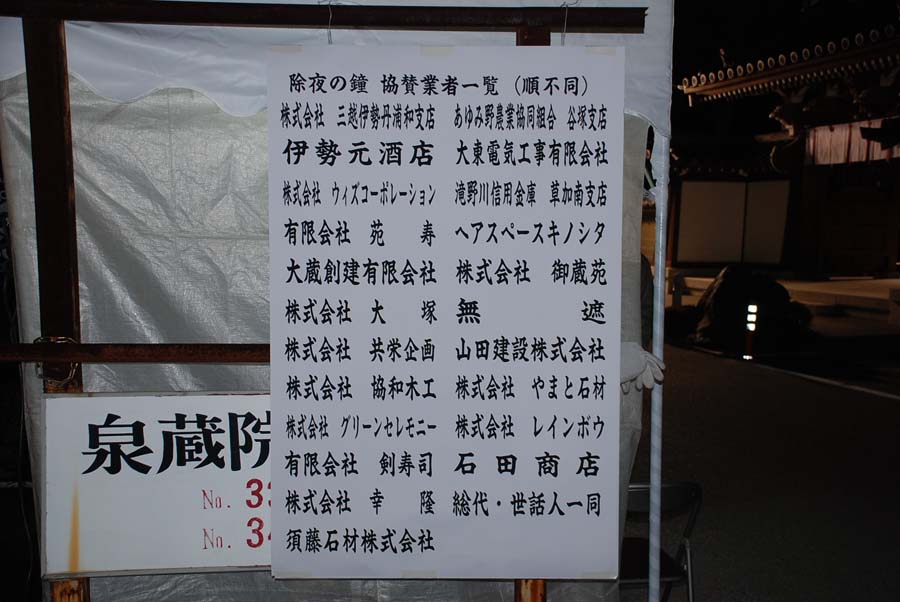 除夜の鐘 協賛業者一覧 (順不同)
株式会社 三越伊勢丹浦和支店
伊勢元酒店
株式会社 ウィズコーポレーション
有限会社 苑 寿
大蔵創建有限会社
株式会社 大 塚
株式会社 共栄企画
株式会社 協和木工
株式会社 グリーンセレモニー
有限会社 剣寿司
株式会社 幸 隆
須藤石材株式会社
あゆみ野農業協同組合 谷塚支店
大東電気工事有限会社
滝野川信用金庫 草加南支店
ヘアスペースキノシタ
株式会社 御蔵苑
無 遮
山田建設株式会社
株式会社 やまと石材
株式会社 レインボウ
石田商店
総代・世話人一同
泉蔵院
No. 33
No. 34